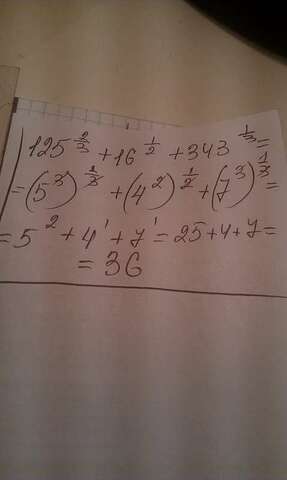 125^(2/3) + 16^(1/2) + 343^(1/3) =
= (5^3)^(2/3) + (4^2)^(1/2) + (7^3)^(1/3) =
= 5^2 + 4^1 + 7^1 = 25 + 4 + 7 =
= 36